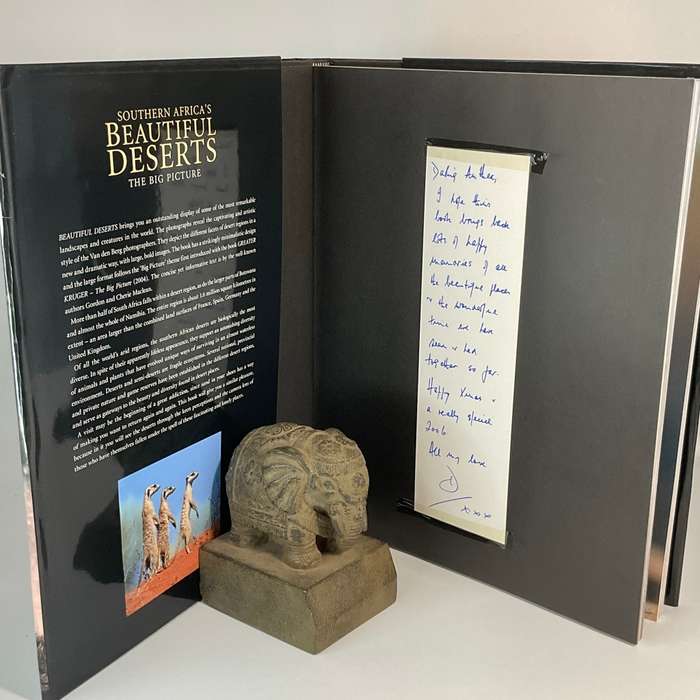 SOUTHERN AFRICA'S
BEAUTIFUL
DESERTS
THE BIG PICTURE
BEAUTIFUL DESERTS brings you an outstanding display of some of the most remarkable
landscapes and creatures in the world. The photographs reveal the captivating and artistic
style of the Van den Berg photographers. They depict the different facets of desert regions in a
new and dramatic way, with large, bold images. The book has a strikingly minimalistic design
and the large format follows the 'Big Picture' theme first introduced with the book GREATER
KRUGER – The Big Picture (2004). The concise yet informative text is by the well known
authors Gordon and Cherie Maclean.
More than half of South Africa falls within a desert region, as do the larger parts of Botswana
and almost the whole of Namibia. The entire region is about 1,8 million square kilometres in
extent – an area larger than the combined land surfaces of France, Spain, Germany and the
United Kingdom.
Of all the world's arid regions, the southern African deserts are biologically the most
diverse. In spite of their apparently lifeless appearance, they support an astonishing diversity
of animals and plants that have evolved unique ways of surviving in an almost waterless
environment. Deserts and semi-deserts are fragile ecosystems. Several national, provincial
and private nature and game reserves have been established in the different desert regions,
and serve as gateways to the beauty and diversity found in desert places.
A visit may be the beginning of a great addiction.
of making you want to return again and again. This book will give you a similar pleasure
because in it you will see the deserts through the keen perceptions and the intense love of
those who have themselves fallen under the spell of these fascinating and harsh places.
Darling
I hope this
book brings back
lots of happy
memories of all
the beautiful places
& the wonderful
time we have
seen & had
together so far.
Happy Xmas &
a really special
2006
All my love